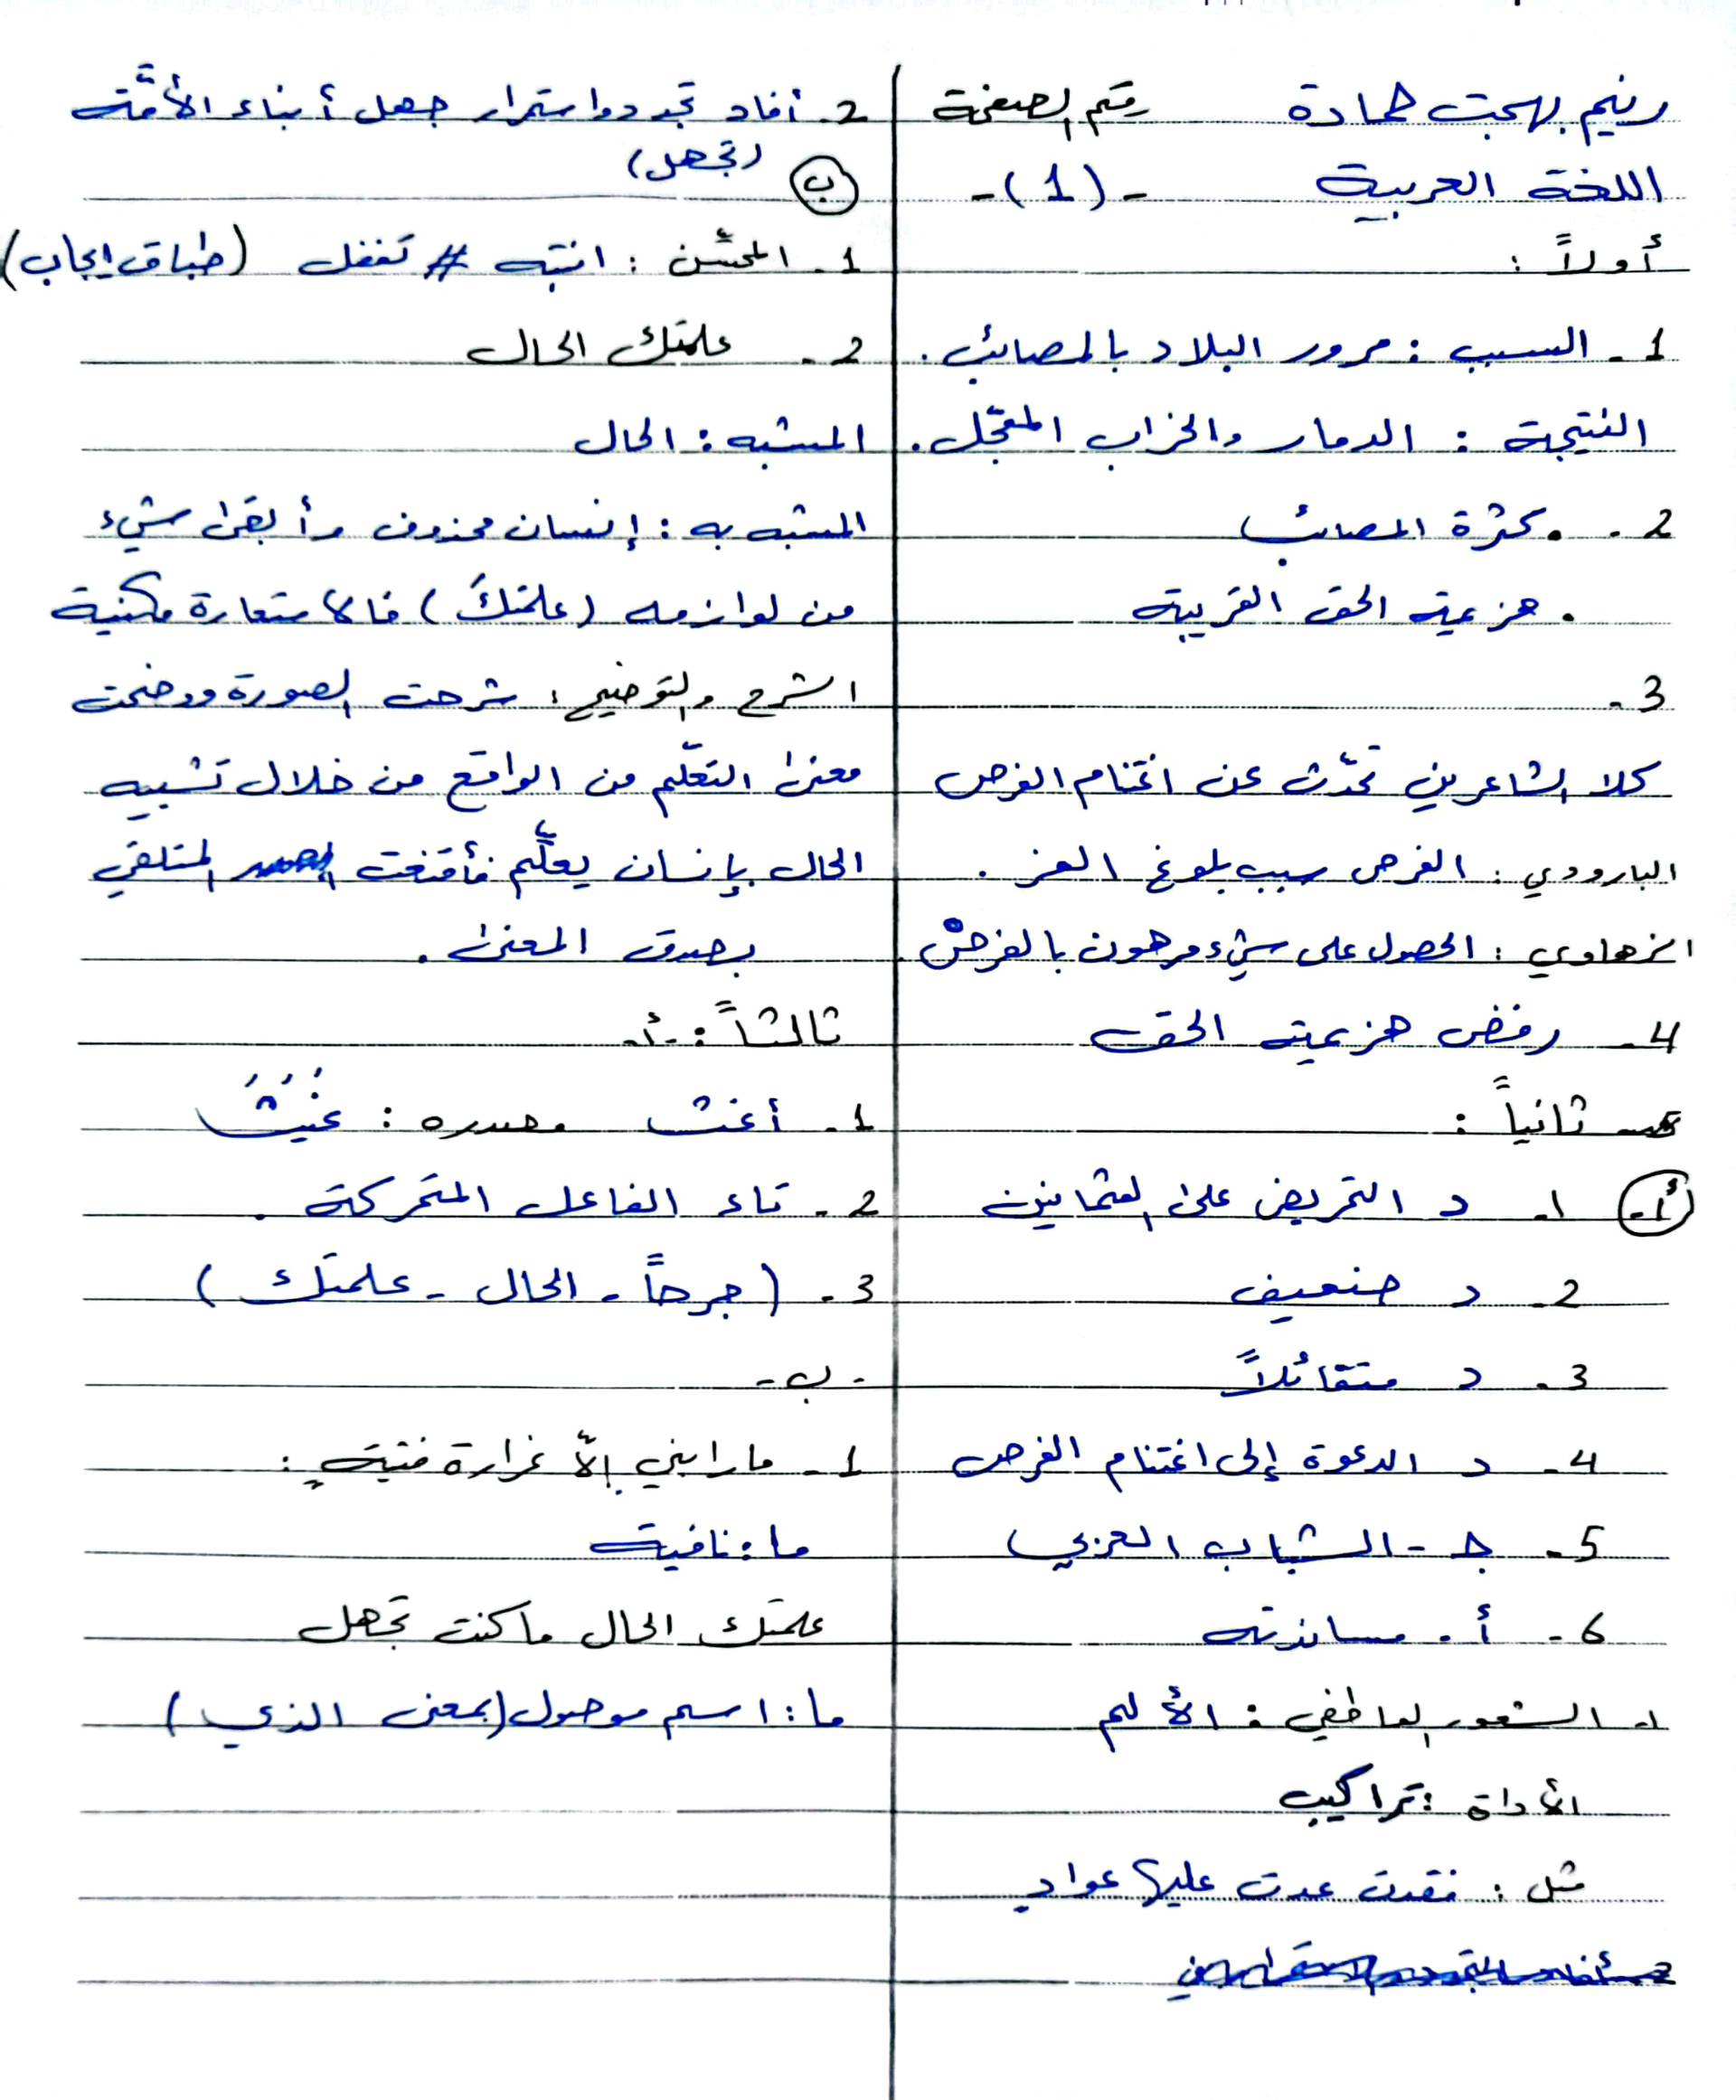 رنيم بهجت حمادة رقم الصفحة
اللغة العربية -(1)-
أولاً :
1- السبب : مرور البلاد بالمصائب .
النتيجة : الدمار والخراب المعجّل .
2- . كثرة المصائب
. هزيمة الحق القريبة
3-
كلا الشاعرين تحدّث عن اغتنام الفرص
البارودي : الفرص سبب بلوغ العز .
الزهاوي : الحصول على شيء مرهون بالفرص .
4- رفض هزيمة الحق
ثانياً :
أ- 1- د التحريض على العثمانيين
2- د ضعيف
3- د متفائلاً
4- د الدعوة إلى اغتنام الفرص
5- جـ - الشباب العربي
6- أ- مساندته
1- الشعور العاطفي : الألم
الأداة : تراكيب
مثل : فقدت عدت عليها عواد
2- أفاد تجدد واستمرار جهل أبناء الأمّة
(تجهل)
ب
1- المحسّن : انتبه # تغفل (طباق إيجاب)
2- علمتك الحال
المشبه : الحال
المشبه به : إنسان محذوف وأبقى شيء
من لوازمه (علمتكَ) فالاستعارة مكنية
الشرح والتوضيح : شرحت الصورة ووضحت
معنى التعلّم من الواقع من خلال تشبيه
الحال بإنسان يعلّم فأقنعت المتلقي
بصدق المعنى .
ثالثاً : -أ-
1- أغث مصدره : غَيْثُ
2- تاء الفاعل المتحركة .
3- (جرحاً - الحال - علمتك)
-ب-
1- ما رابني إلّا غرارة فتيةٍ :
ما : نافية
علمتك الحال ما كنت تجهل
ما : اسم موصول (بمعنى الذي)